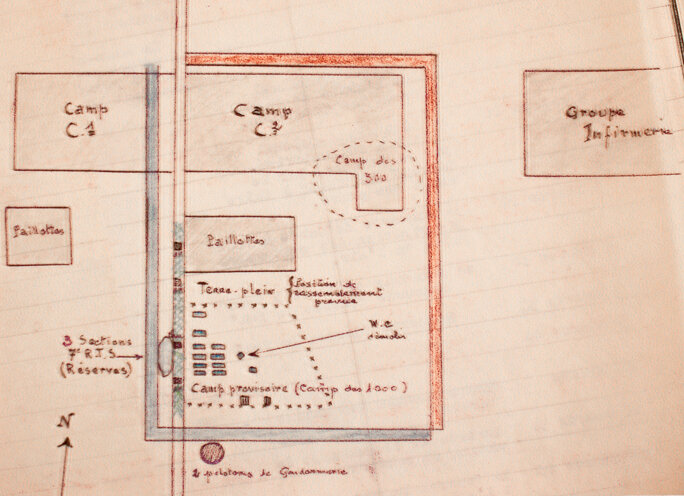 Camp
C.1
Camp
C.2
Groupe
Infirmerie
Camp des
300
Paillottes
Paillottes
Terre-plein
Position de
rassemblement
prévue
3 Sections
7e R.T.S
(Réserves)
W.C
démolis
Camp provisoire (Camp des 1000)
N
2 pelotons de Gendarmerie